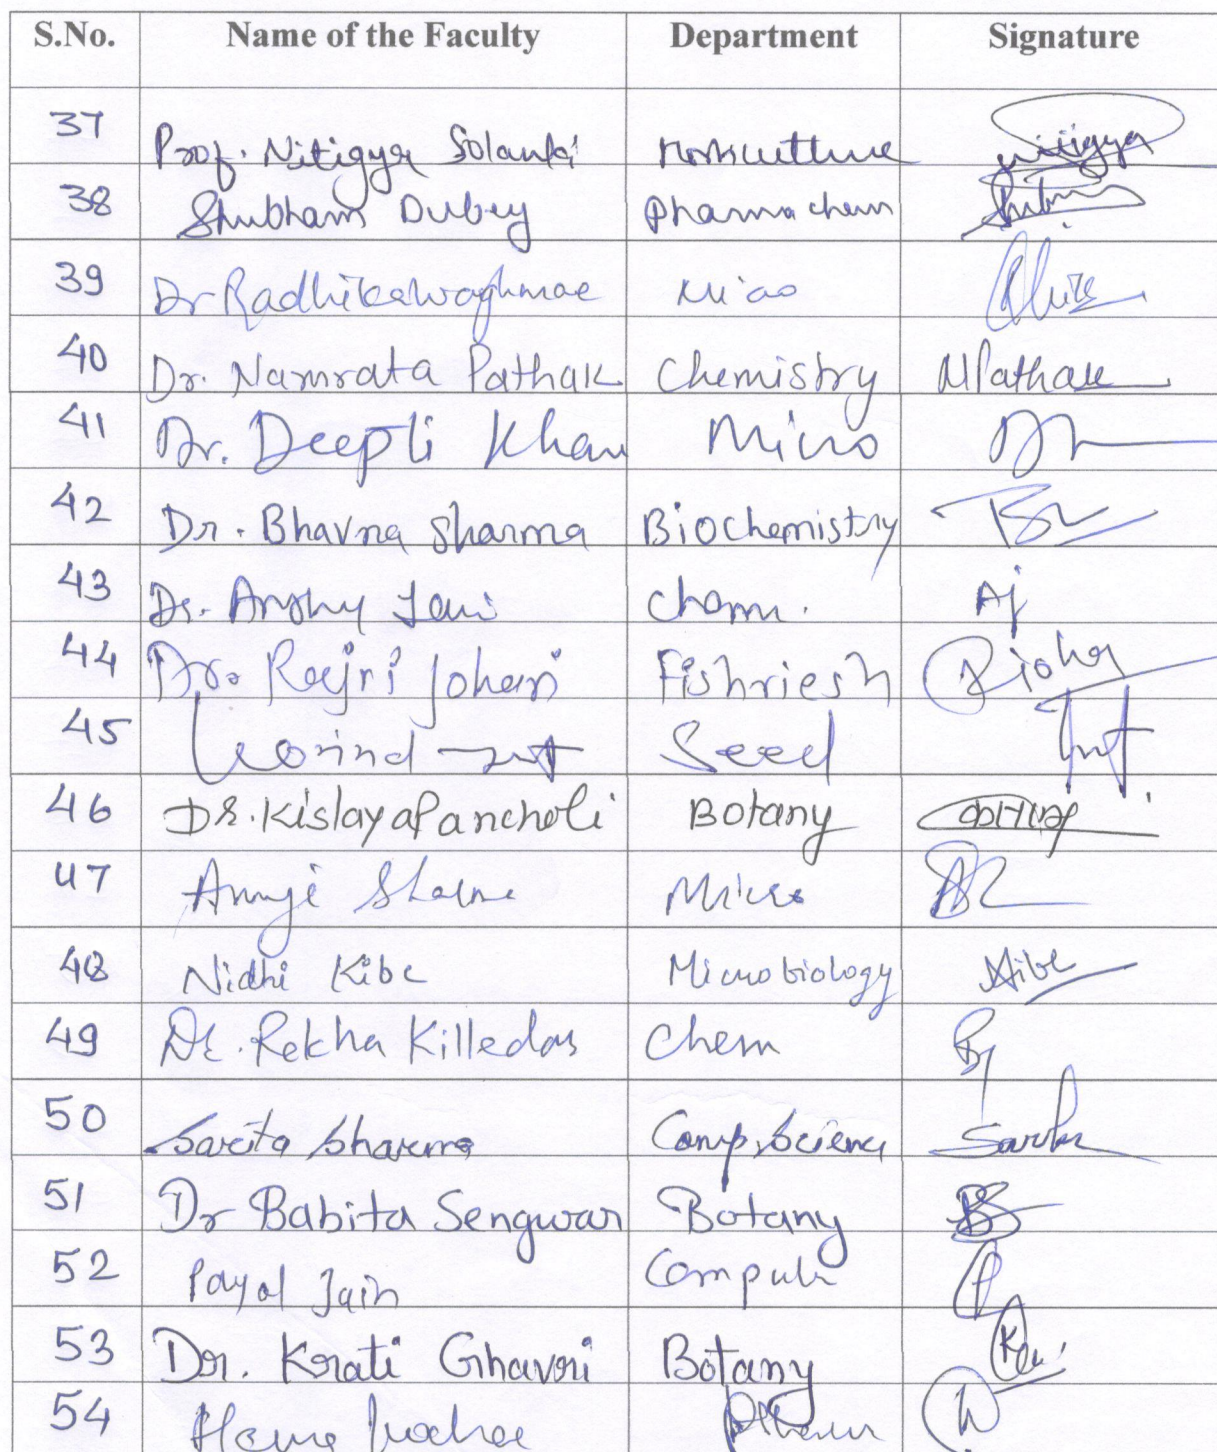 S.No. Name of the Faculty Department Signature
37 Prof. Nitigya Solanki Horticulture Nitigya
38 Shubham Dubey Pharma chem
39 Dr Radhika Waghmae Micro
40 Dr. Namrata Pathak Chemistry NPathak
41 Dr. Deepti Khan Micro
42 Dr. Bhavna Sharma Biochemistry
43 Dr. Anshy Jain Chem. AJ
44 Dr. Rajri Johari Fishriesh
45 Seed
46 Dr. Kislaya Pancholi Botany
47 Sharma Micro
48 Nidhi Kibe Microbiology Kibe
49 Dr. Rekha Killedar Chem
50 Sarita Sharma Comp. Science Sarita
51 Dr Babita Sengwar Botany
52 Payal Jain Computer
53 Dr. Krati Ghavri Botany
54